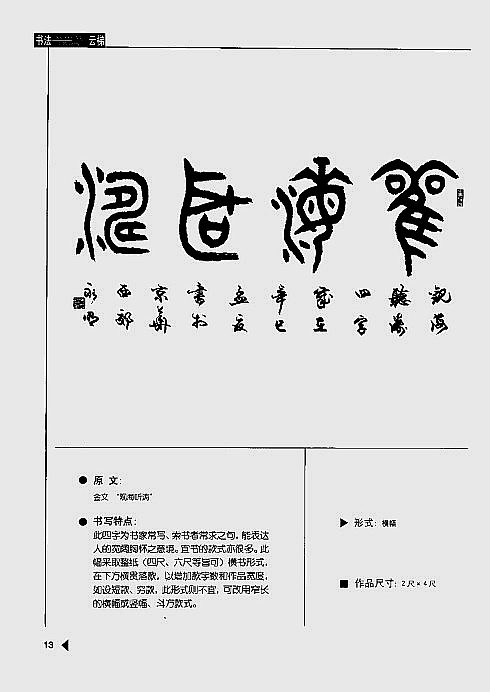 书法 云梯
觀海聽濤
觀海
聽濤
四字
歲在
辛巳
孟夏
書於
京華
西郊
永明
● 原 文：
金文 “观海听涛”
● 书写特点：
此四字为书家常写、索书者常求之句，能表达
人的宽阔胸怀之意境。宜书的款式亦很多。此
幅采取整纸（四尺、六尺等皆可）横书形式，
在下方横贯落款，以增加款字数和作品宽度，
如设短款、穷款，此形式则不宜，可改用窄长
的横幅或竖幅、斗方款式。
▶ 形式：横幅
■ 作品尺寸：2尺×4尺
13